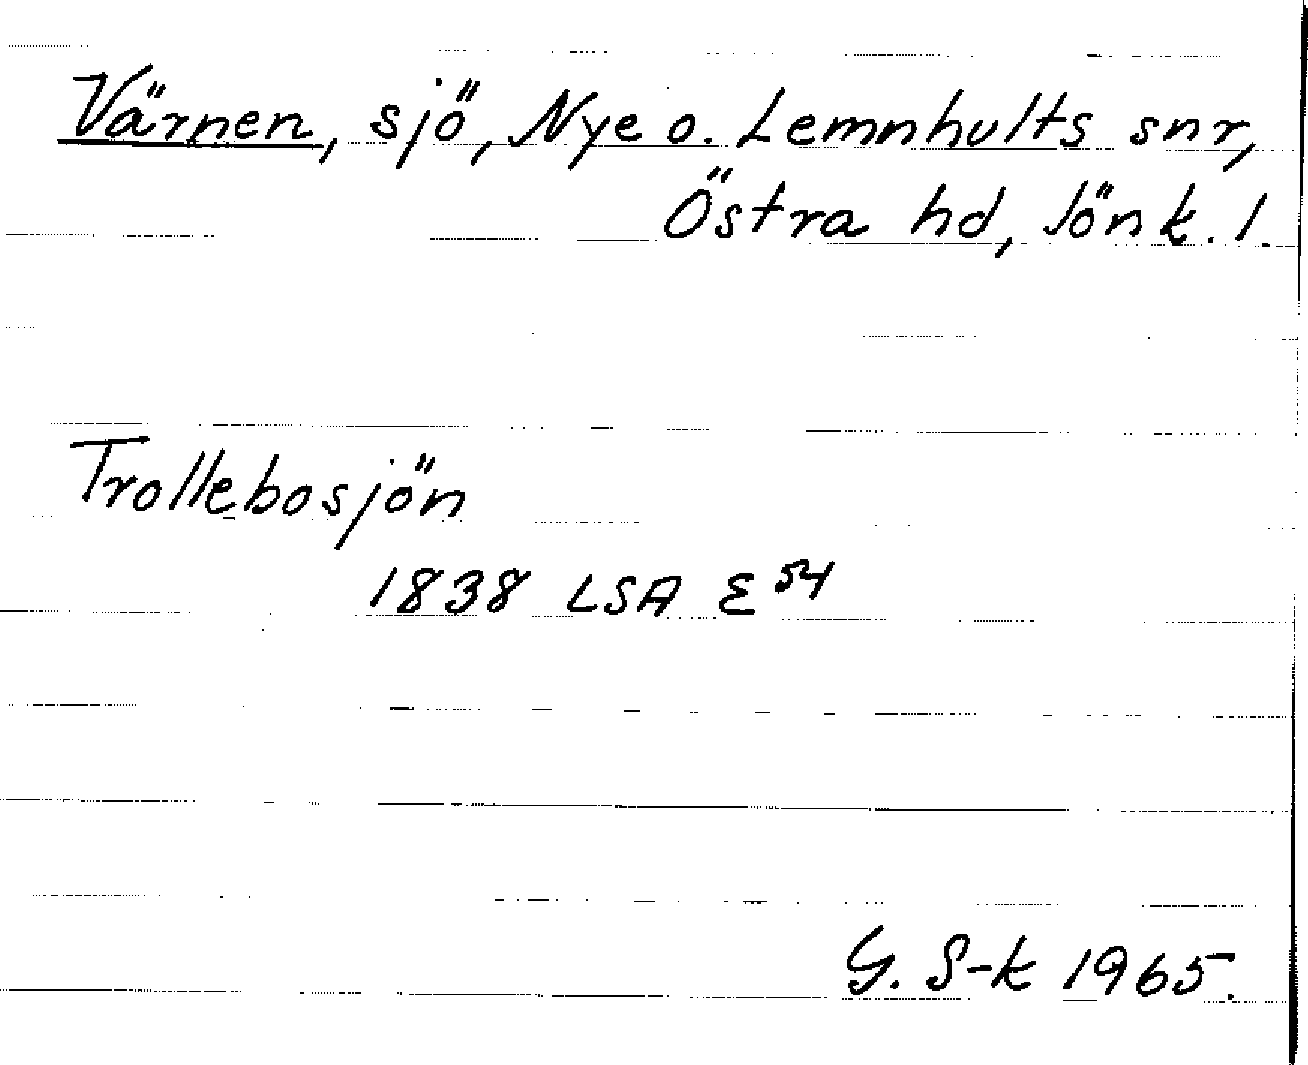 Värnen, sjö, Nye o. Lemnhults snr,
Östra hd, Jönk. l.
Trollebosjön
1838 LSA E 54
G. S-k 1965.